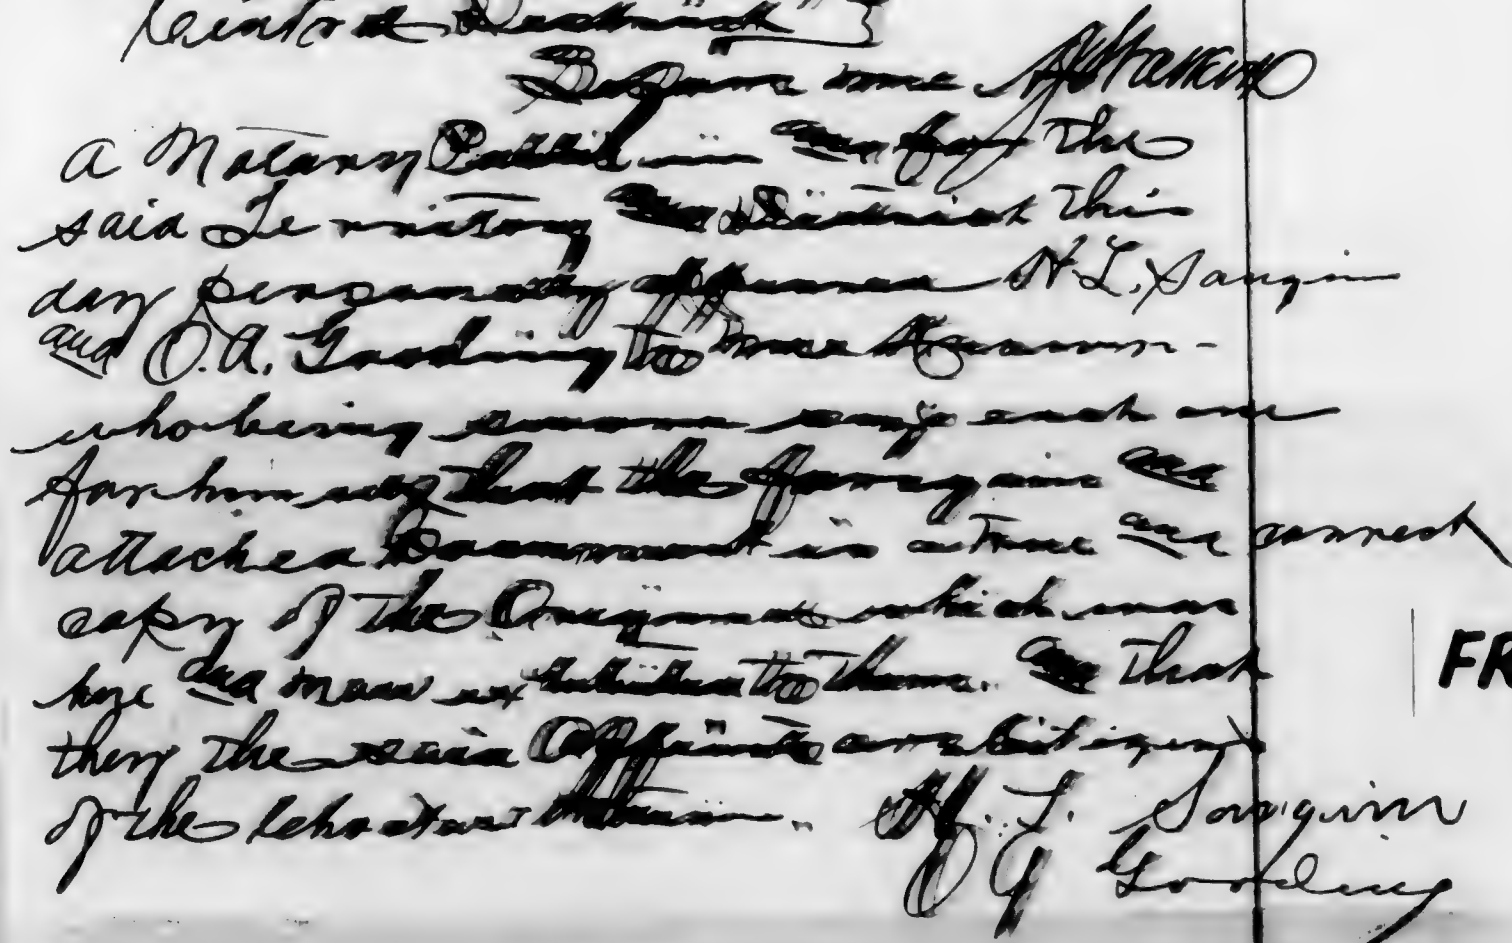 Central District
Before me
a Notary Public in and for the
said Territory and District this
day personally appeared H. L. Sanguin
and O. A. Gooding to me Known -
who being sworn says each one
for himself that the foregoing and
attached Document is a true and correct
copy of the Original which was
here and now exhibited to them. and that
they the said Affiants are Citizens
of the Choctaw Nation.
H. L. Sanguin
O G Gooding
FR